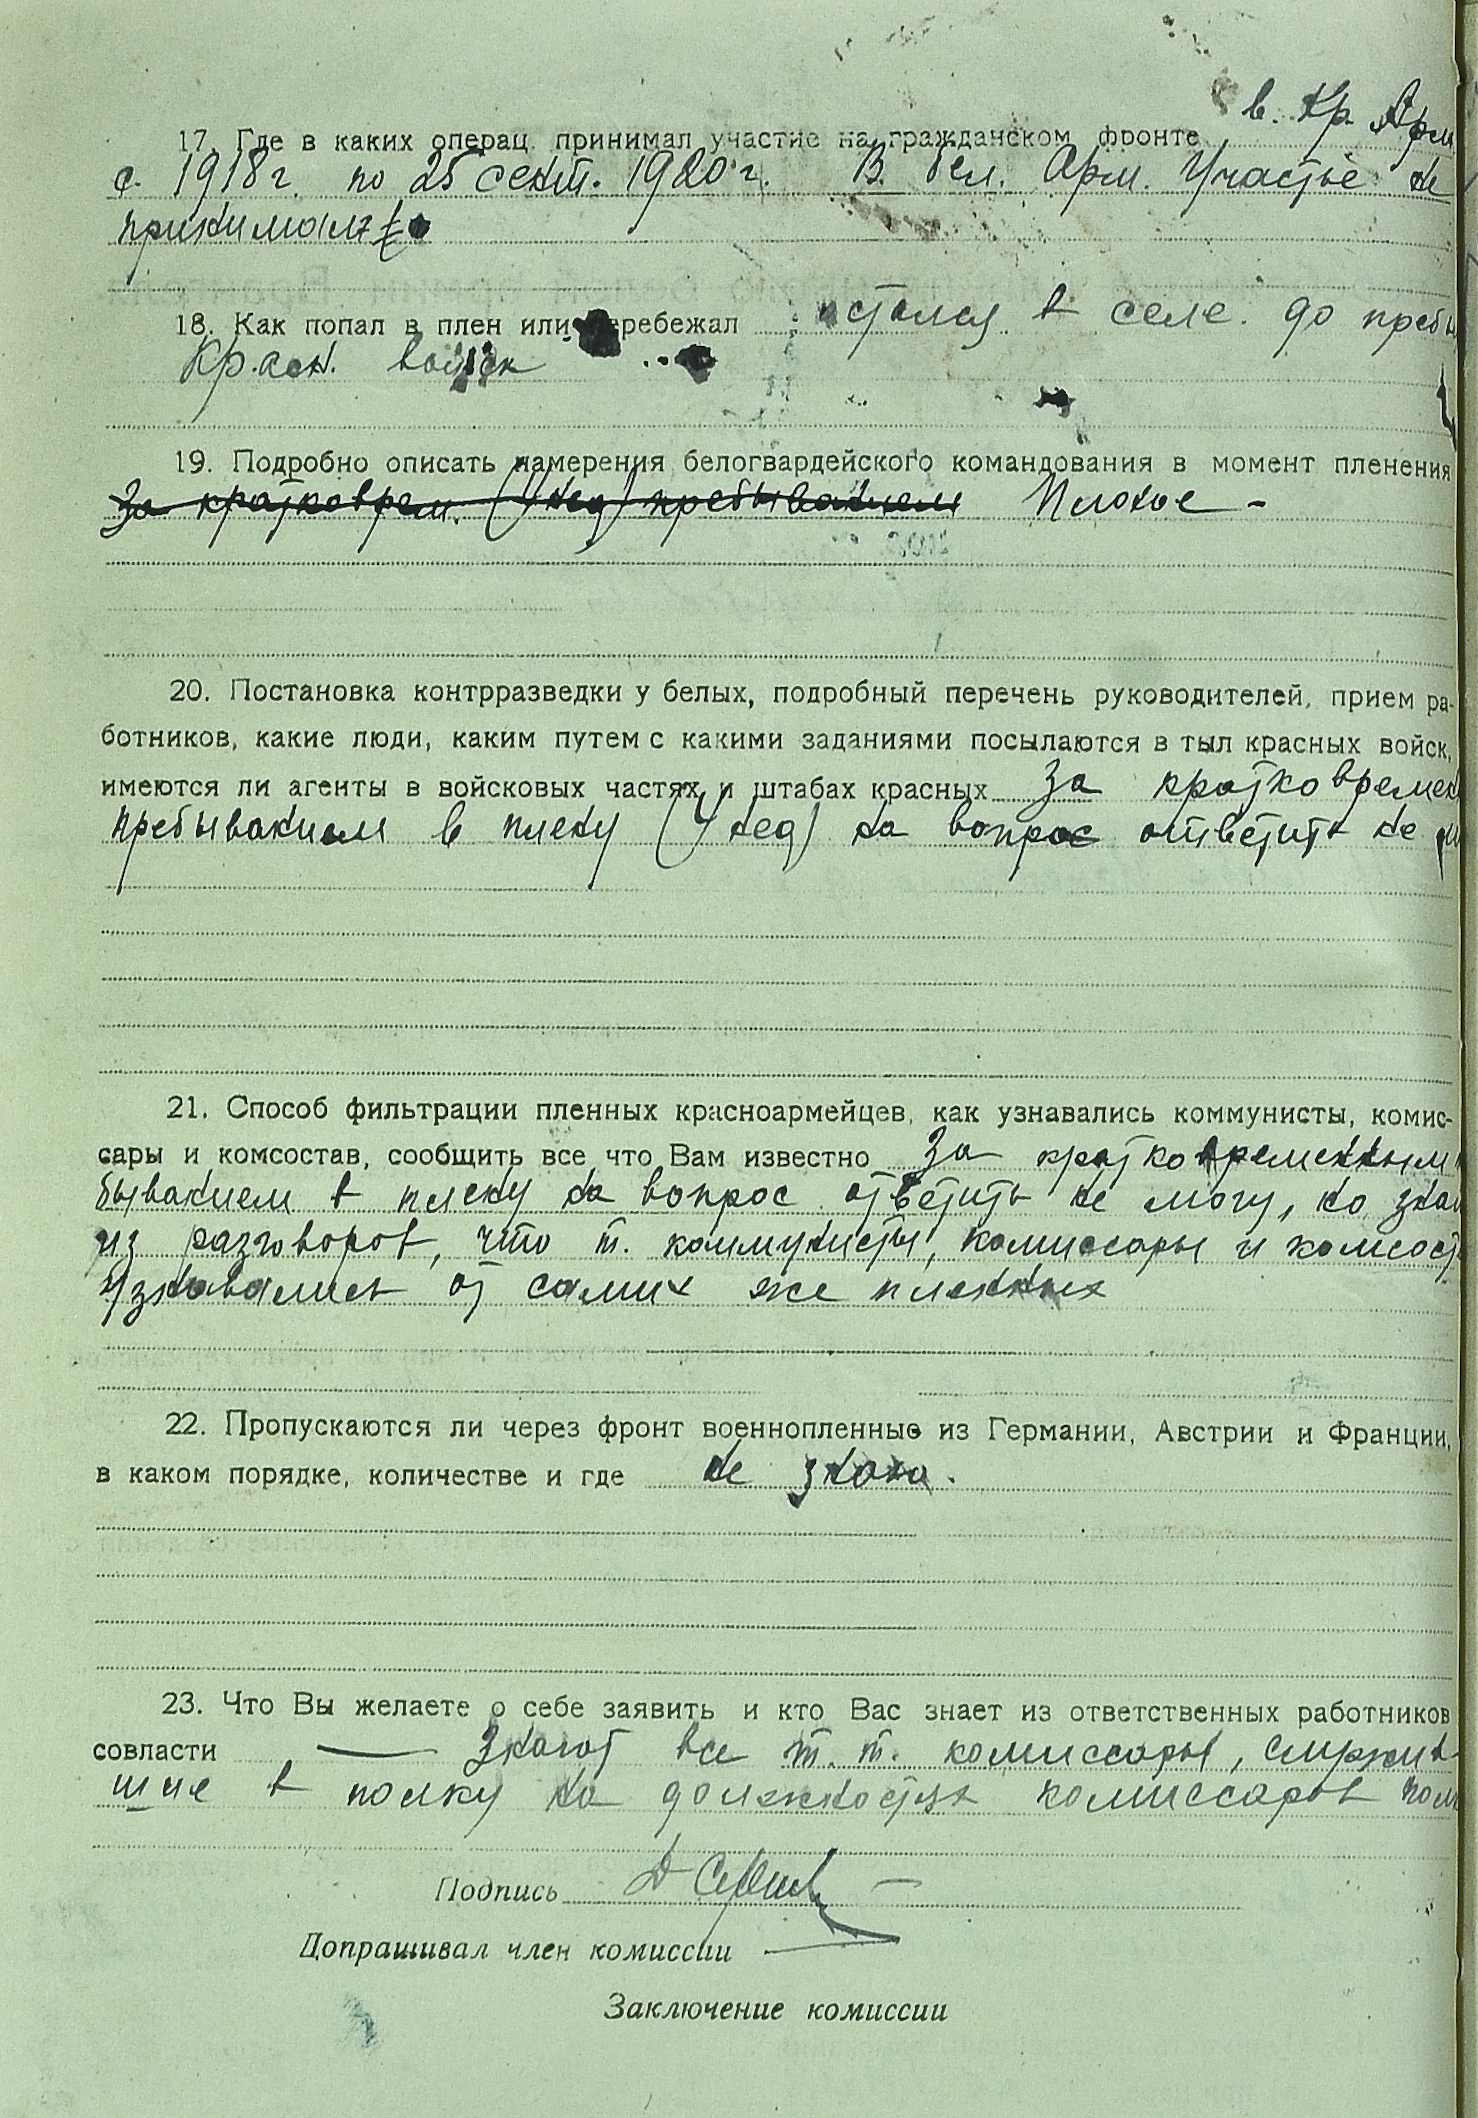 17. Где в каких операц. принимал участие на гражданском фронте в Кр. Арм.
с 1918 г. по 25 сент. 1920 г. В бел. Арм. Участье не
принимал
18. Как попал в плен или перебежал остался в селе до
Красн. войск
19. Подробно описать намерения белогвардейского командования в момент пленения
За кратковрем. (4 нед) пребыванием Плохое -
20. Постановка контрразведки у белых, подробный перечень руководителей, прием ра-
ботников, какие люди, каким путем с какими заданиями посылаются в тыл красных войск,
имеются ли агенты в войсковых частях и штабах красных За кратковремен
пребыванием в плену (4 нед) на вопрос ответить не
21. Способ фильтрации пленных красноармейцев, как узнавались коммунисты, комис-
сары и комсостав, сообщить все что Вам известно За кратковременным
быванием в плену на вопрос ответить не могу, но знаю
из разговоров, что т. коммунисты, комиссары и комсост
узнавались от самих же пленных
22. Пропускаются ли через фронт военнопленные из Германии, Австрии и Франции,
в каком порядке, количестве и где не знаю.
23. Что Вы желаете о себе заявить и кто Вас знает из ответственных работников
совласти — Знают все т.т. комиссары, служив-
шие в полку на должностях комиссаров
Подпись
Допрашивал член комиссии
Заключение комиссии